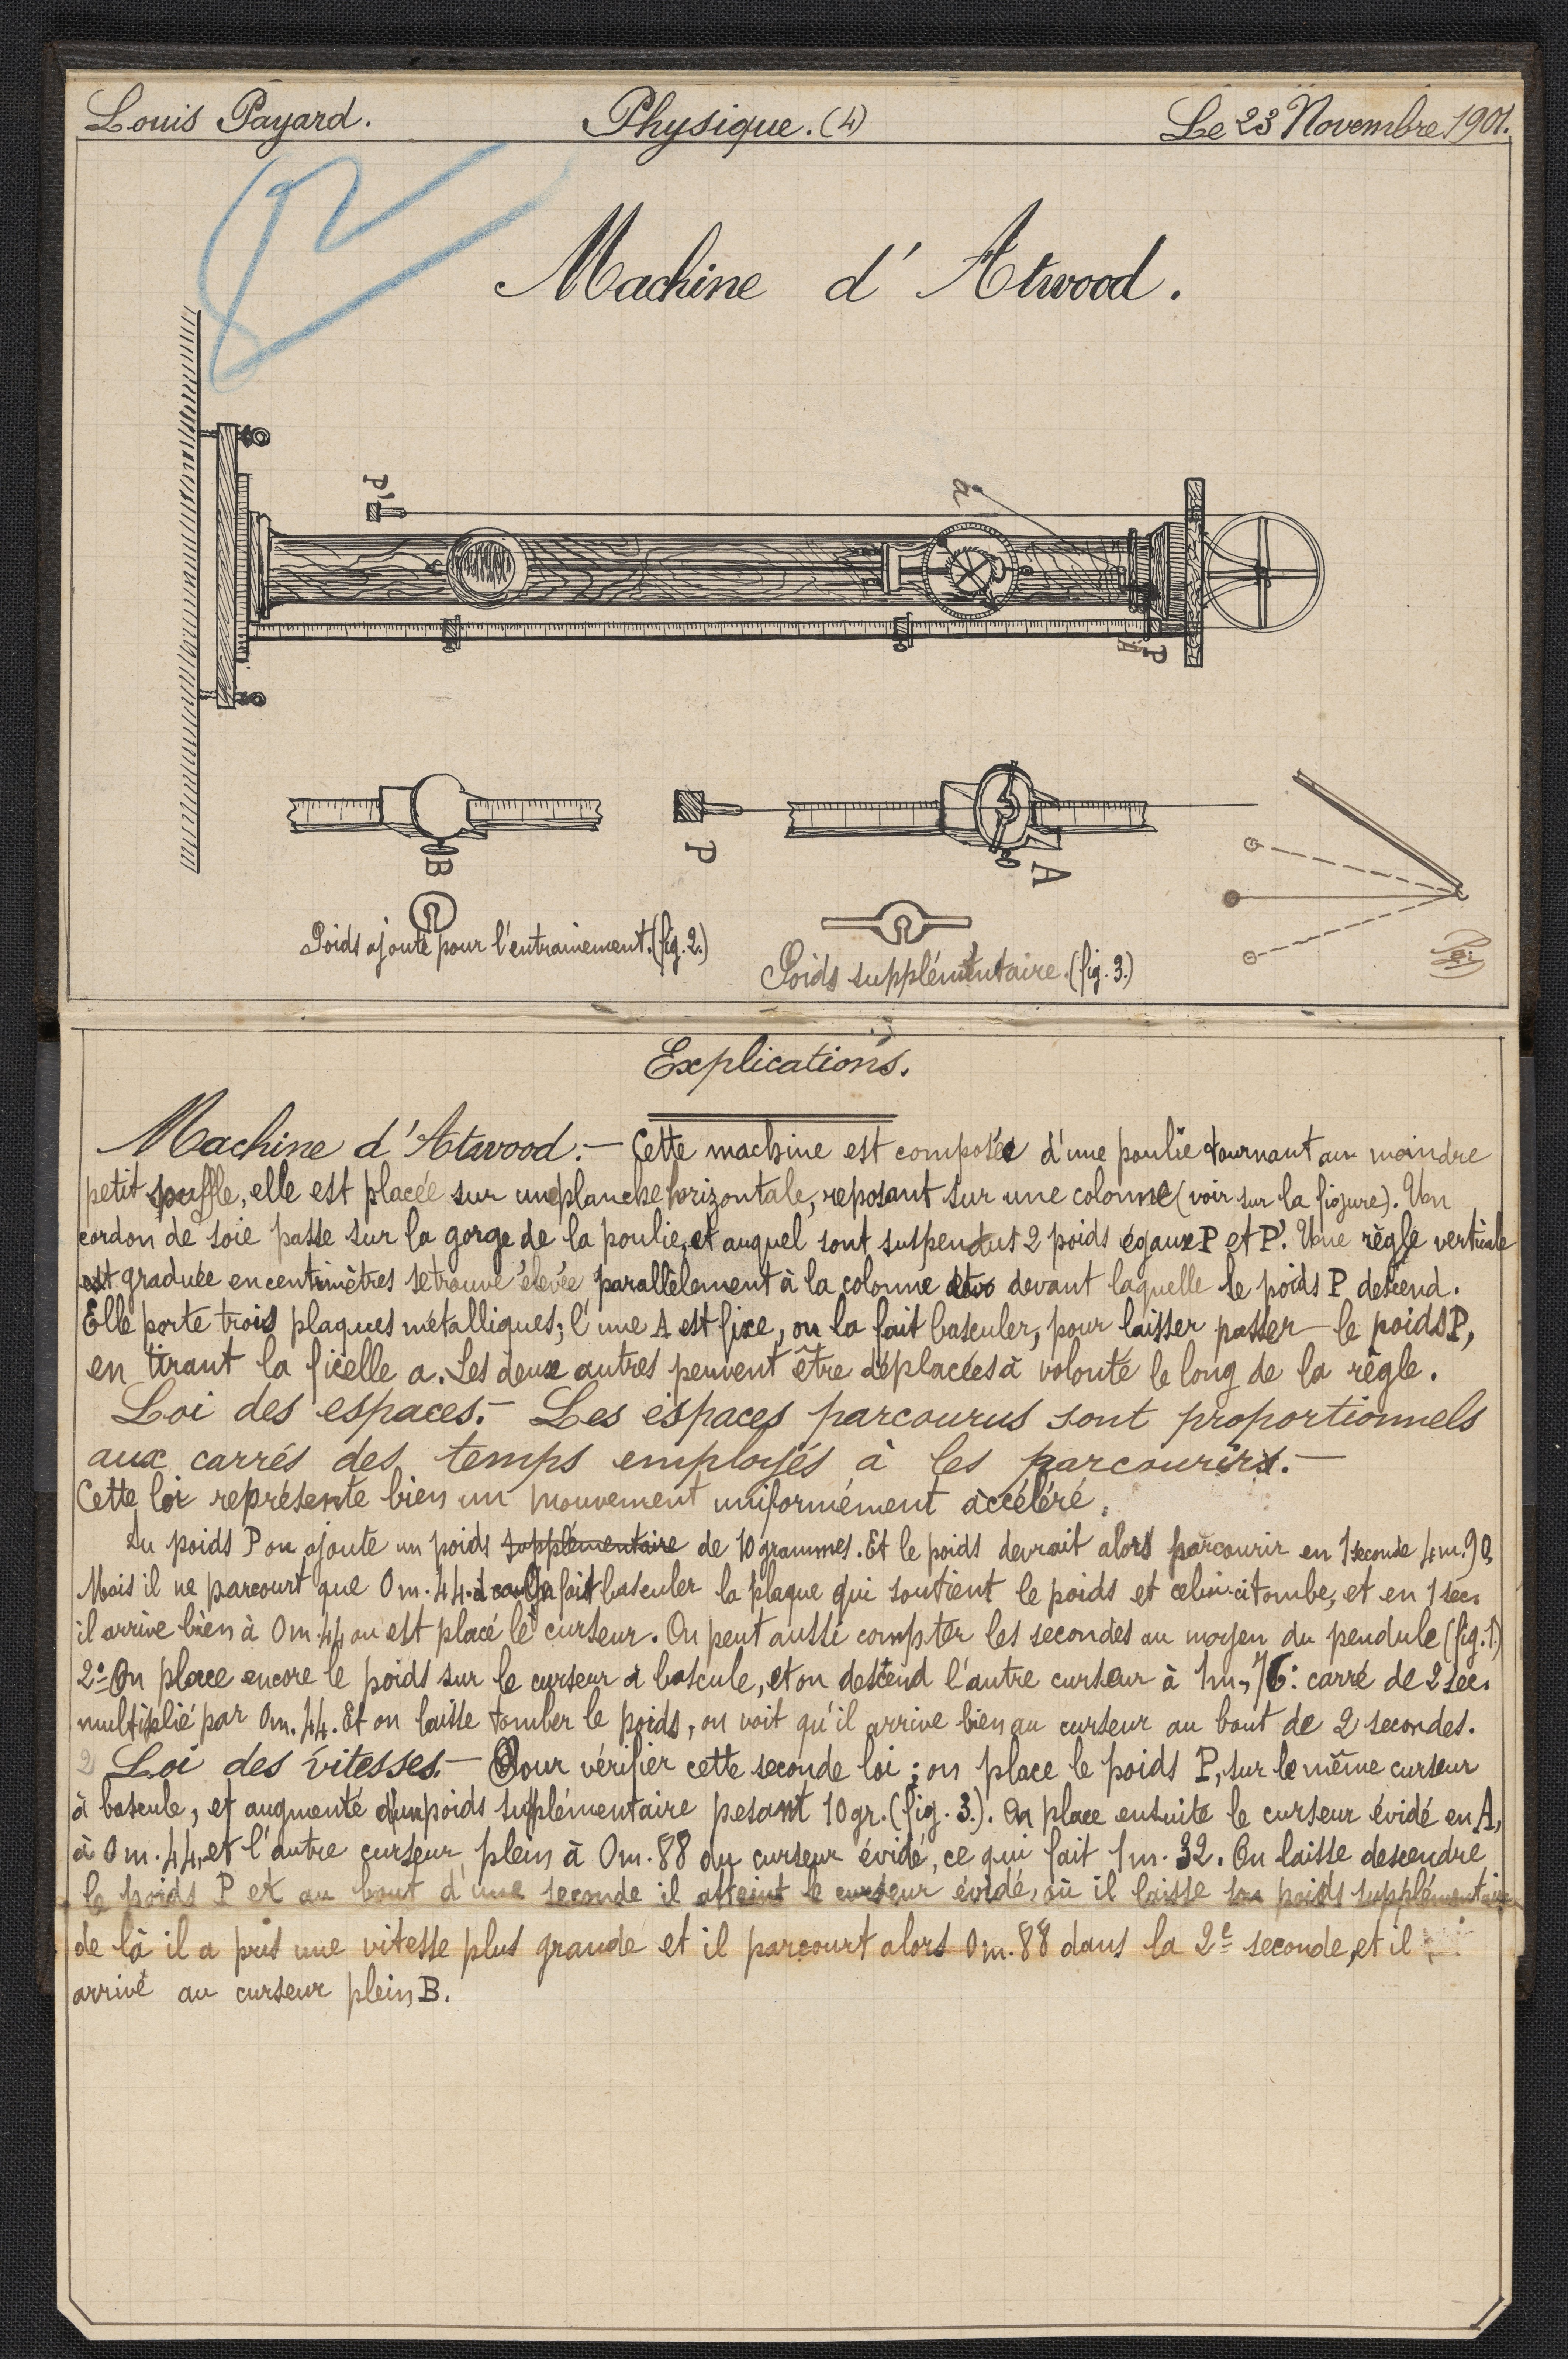 Louis Payard. Physique. (4) Le 23 Novembre 1901.
Machine d'Atwood.
P'
a
P
B
P
A
Poids ajouté pour l'entrainement. (fig. 2.)
Poids supplémentaire. (fig. 3.)
Explications.
Machine d'Atwood. — Cette machine est composée d'une poulie tournant au moindre
petit souffle, elle est placée sur une planche horizontale, reposant sur une colonne (voir sur la figure). Un
cordon de soie passe sur la gorge de la poulie, et auquel sont suspendus 2 poids égaux P et P'. Une règle verticale
est graduée en centimètres se trouve élevée parallèlement à la colonne devant laquelle le poids P descend.
Elle porte trois plaques métalliques; l'une A est fixe, on la fait basculer, pour laisser passer le poids P,
en tirant la ficelle a. Les deux autres peuvent être déplacées à volonté le long de la règle.
Loi des espaces. — Les espaces parcourus sont proportionnels
aux carrés des temps employés à les parcourirs. —
Cette loi représente bien un mouvement uniformément accéléré.
Au poids P on ajoute un poids supplémentaire de 10 grammes. Et le poids devrait alors parcourir en 1 seconde 4m.90.
Mais il ne parcourt que 0m.44. On fait basculer la plaque qui soutient le poids et celui-ci tombe, et en 1 sec.
il arrive bien à 0m.44 ou est placé le curseur. On peut aussi compter les secondes au moyen du pendule (fig. 1.)
2º On place encore le poids sur le curseur à bascule, et on descend l'autre curseur à 1m,76: carré de 2 sec.
multiplié par 0m.44. Et on laisse tomber le poids, on voit qu'il arrive bien au curseur au bout de 2 secondes.
2 Loi des vitesses. — Pour vérifier cette seconde loi; on place le poids P, sur le même curseur
à bascule, et augmenté d'un poids supplémentaire pesant 10 gr. (fig. 3.). On place ensuite le curseur évidé en A,
à 0m.44, et l'autre curseur plein à 0m.88 du curseur évidé, ce qui fait 1m.32. On laisse descendre
le poids P et au bout d'une seconde il atteint le curseur évidé, où il laisse son poids supplémentaire
de là il a pris une vitesse plus grande et il parcourt alors 0m.88 dans la 2e seconde, et il
arrive au curseur plein B.